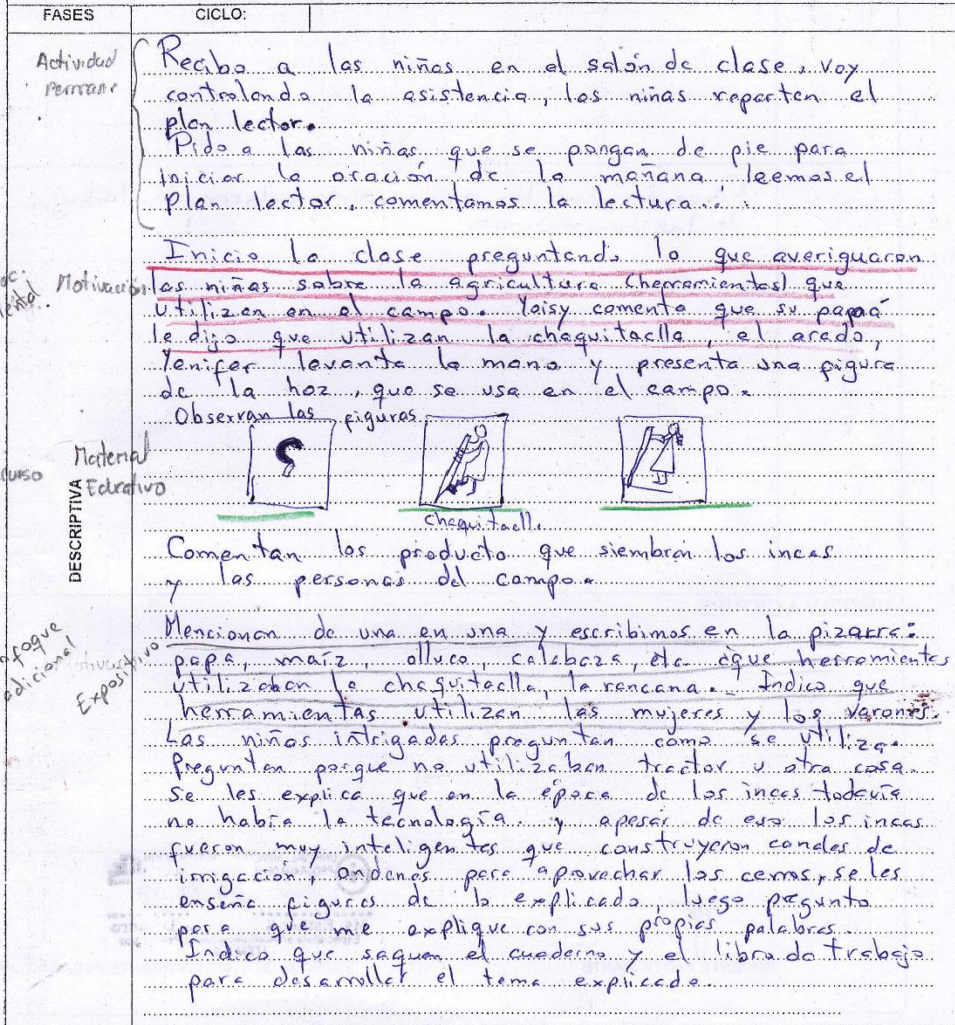 FASES CICLO:
Actividad
Recibo a las niñas en el salón de clase, voy
controlando la asistencia, las niñas reparten el
plan lector.
Pido a las niñas que se pongan de pie para
iniciar la oración de la mañana leemos el
plan lector, comentamos la lectura.
Inicio la clase preguntando lo que averiguaron
Motivación las niñas sobre la agricultura (herramientas) que
utilizan en el campo. Yaisy comenta que su papaá
le dijo que utilizan la chaquitaclla, el arado,
Yenifer levanta la mano y presenta una figura
de la hoz, que se usa en el campo.
Observan las figuras
Material
Educativo
DESCRIPTIVA
chaquitacll.
Comentan los producto que siembran los incas
y las personas del campo.
Mencionan de una en una y escribimos en la pizarra:
papa, maíz, olluco, calabaza, etc que herramientas
Expositivo
utilizaban la chaquitaclla, la rancana. Indico que
herramientas utilizan las mujeres y los varones.
Las niñas intrigadas preguntan como se utiliza.
Preguntan porque no utilizaban tractor u otra cosa.
Se les explica que en la época de los incas todavía
no había la tecnología y apesar de eso los incas
fueron muy inteligentes que construyeron canales de
irrigación, andenes para aprovechar los cerros, se les
enseña figuras de lo explicado, luego pregunto
para que me explique con sus propias palabras
Indico que saquen el cuaderno y el libro do trabajo
para desarrollar el tema explicado.